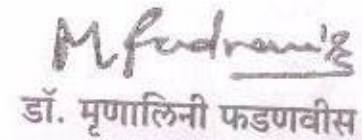 M Fadnavis
डॉ. मृणालिनी फडणवीस